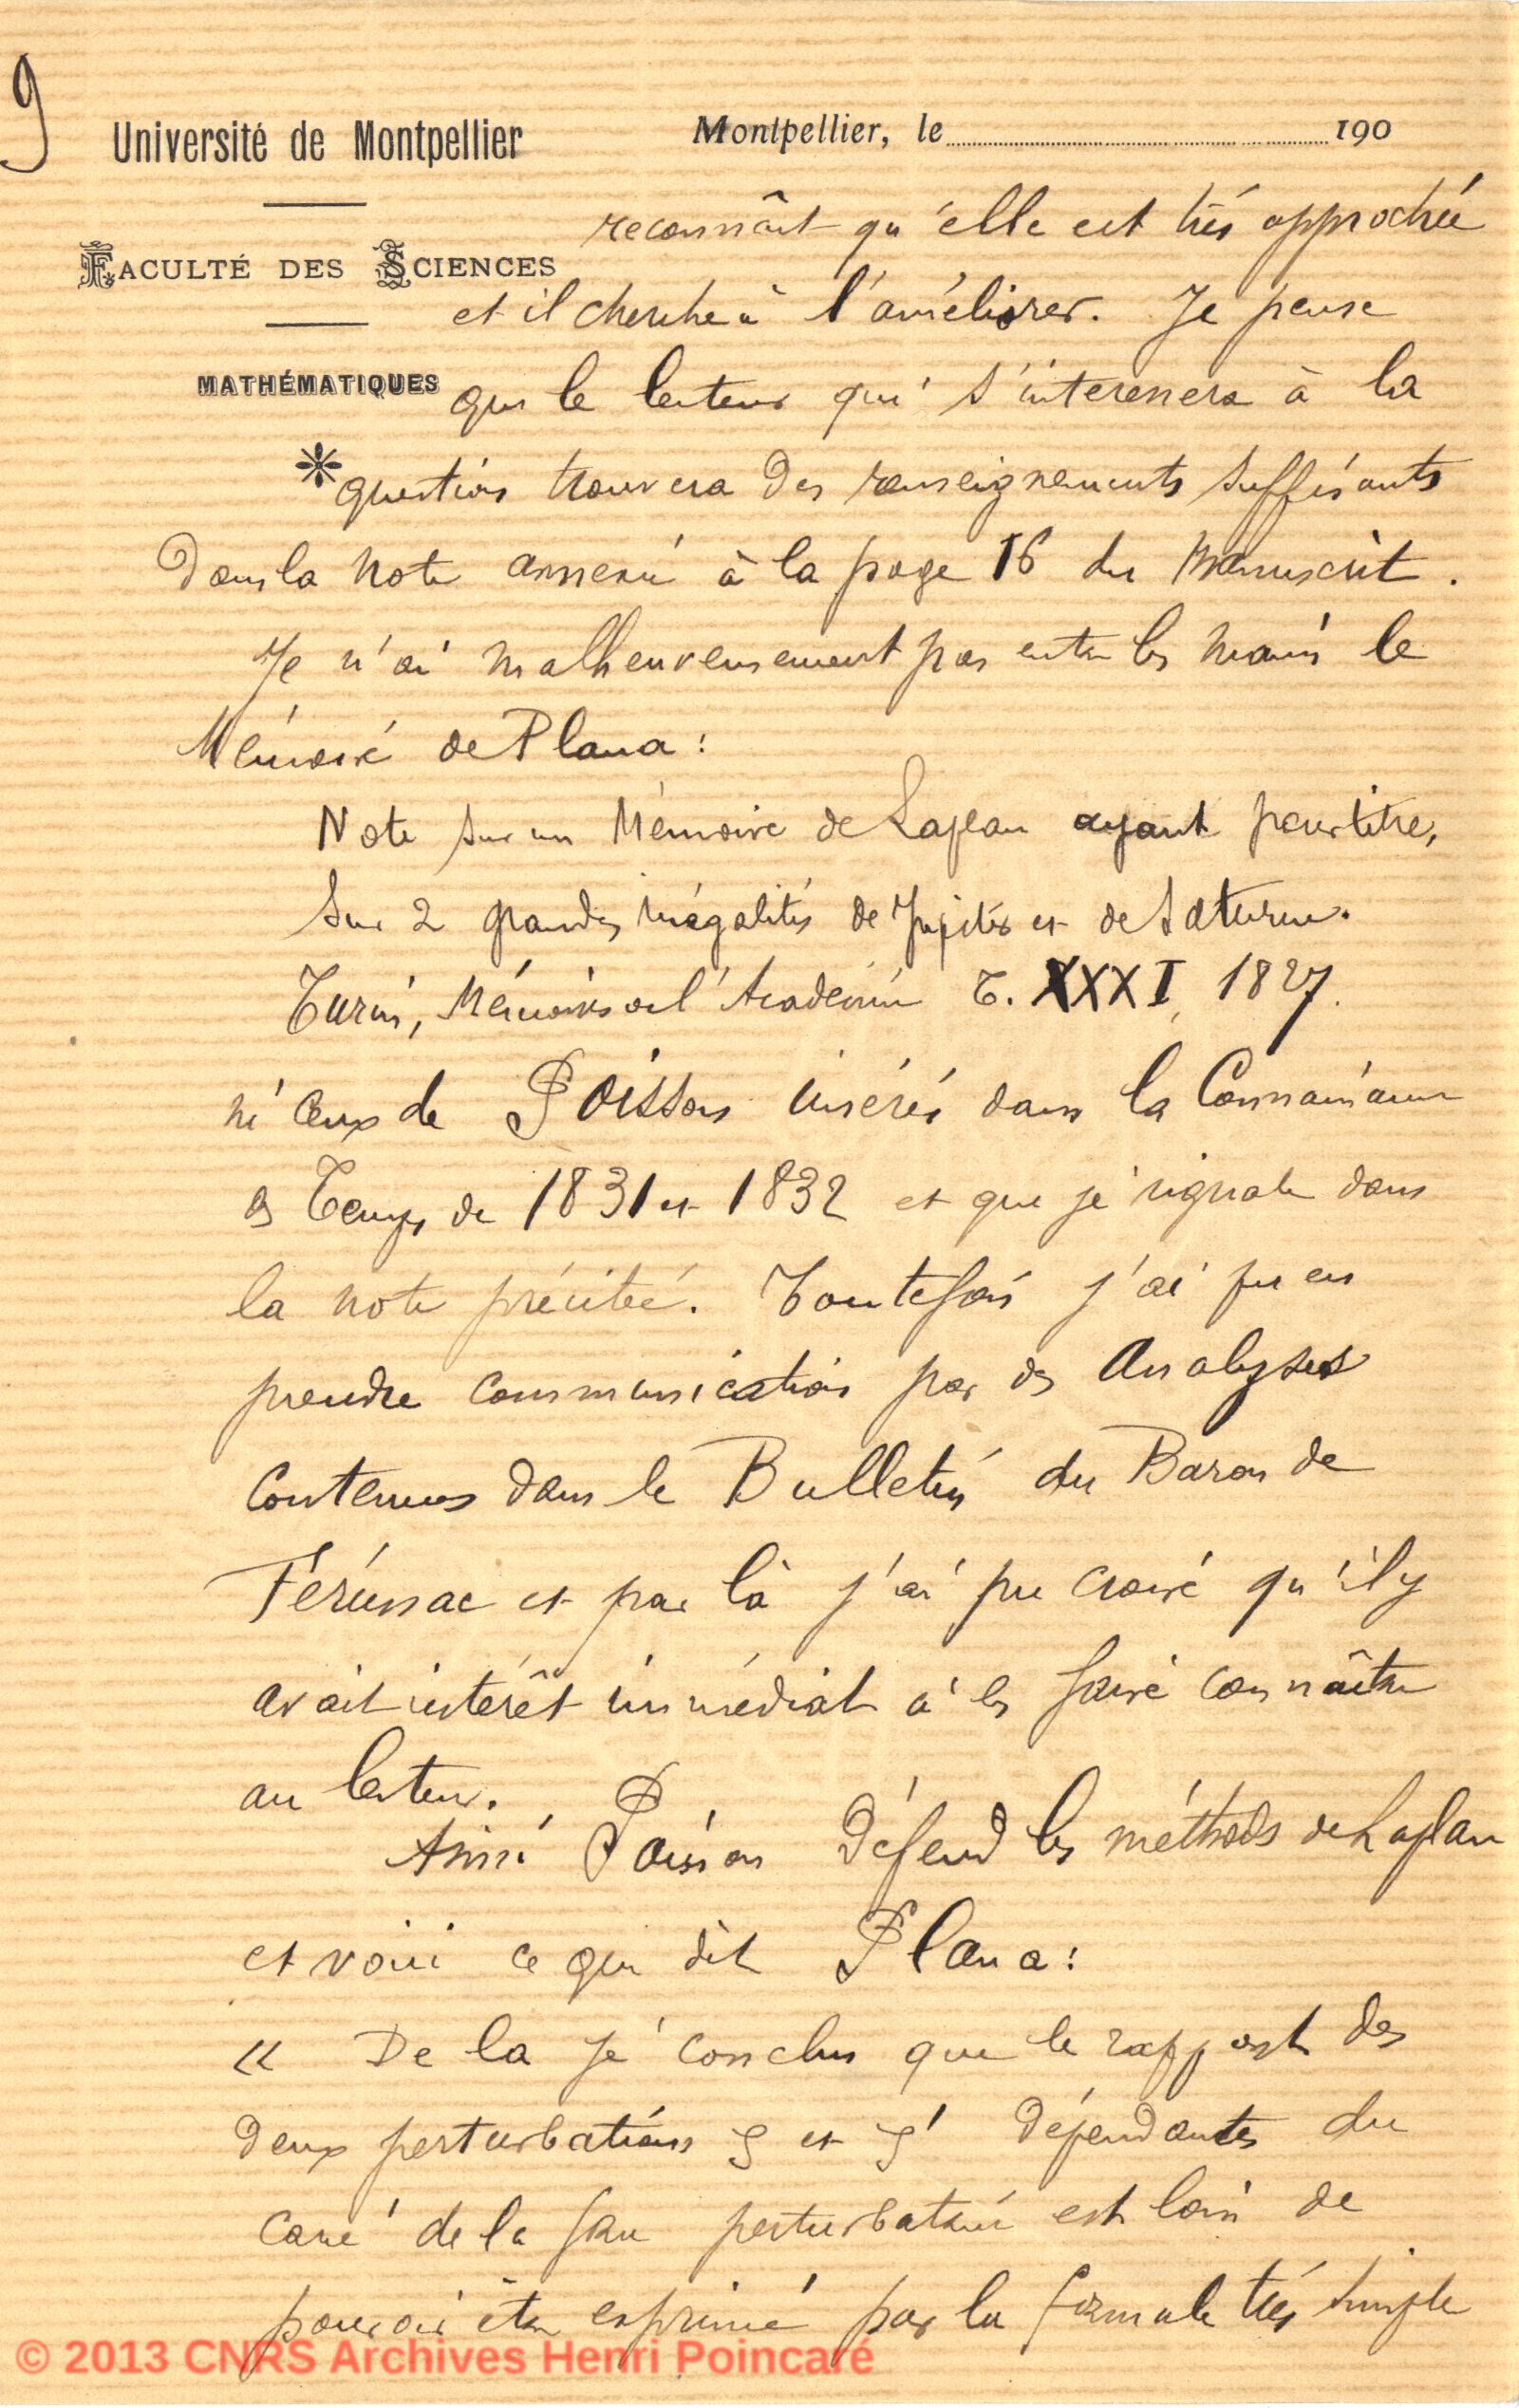 9
Université de Montpellier
Montpellier, le 190
FACULTÉ DES SCIENCES
MATHÉMATIQUES
reconnaît qu'elle est très approchée
et il cherche à l'améliorer. Je pense
que le lecteur qui s'interessera à la
question trouvera des renseignements suffisants
dans la note annexée à la page 16 du Manuscrit.
Je n'ai malheureusement pas entre les mains le
Mémoire de Plana :
Note sur un Mémoire de Laplace ayant pour titre,
Sur 2 grandes inégalités de Jupiter et de Saturne.
Turin, Mémoires de l'Académie T. XXXI, 1827.
ni ceux de Poisson insérés dans la Connaissance
des Temps de 1831 et 1832 et que je signale dans
la note précitée. Toutefois j'ai pu en
prendre communication par des Analyses
contenues dans le Bulletin du Baron de
Férussac et par là j'ai pu croire qu'il y
avait intérêt immédiat à les faire connaître
au lecteur.
Ainsi Poisson défend les méthodes de Laplace
et voici ce que dit Plana :
« De la je conclus que le rapport des
deux perturbations ζ et ζ' dépendantes du
carré de la force perturbatrice est loin de
pouvoir être exprimé par la formule très simple
© 2013 CNRS Archives Henri Poincaré